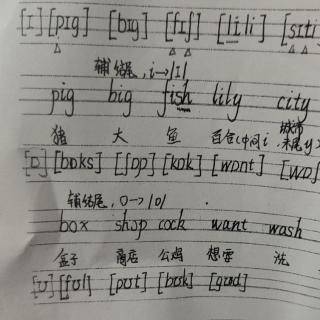 [ɪ] [pɪg] [bɪg] [fɪʃ] [lɪli] [sɪti
辅结尾, i→|ɪ|
pig big fish lily city
猪 大 鱼 百合(中间i, 城市 末尾y
[ɒ] [bɒks] [ʃɒp] [kɒk] [wɒnt] [wɒʃ
辅结尾, o→|ɒ|
box shop cock want wash
盒子 商店 公鸡 想要 洗
[ʊ] [fʊl] [pʊt] [bʊk] [gʊd]